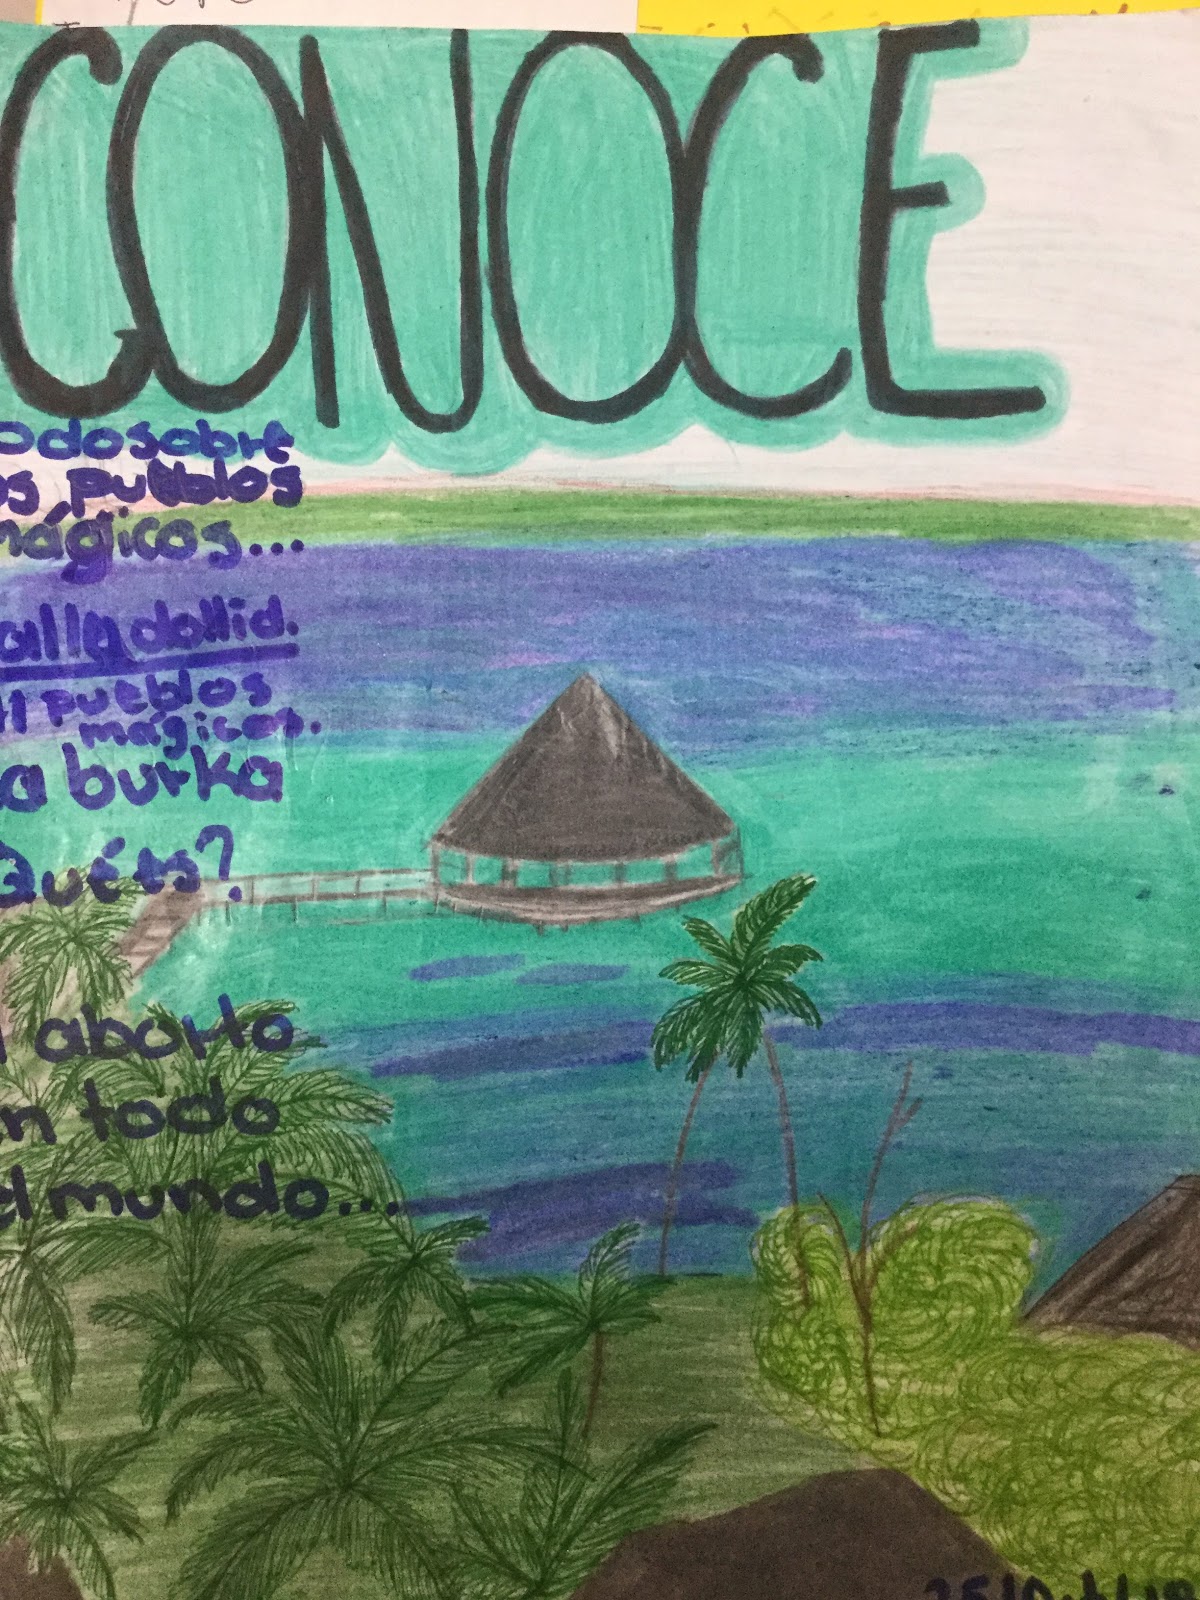 CONOCE
odo sobre
os pueblos
mágicos...
alladolid.
11 pueblos
mágicos.
a burka
Qué es?
aborto
n todo
el mundo...